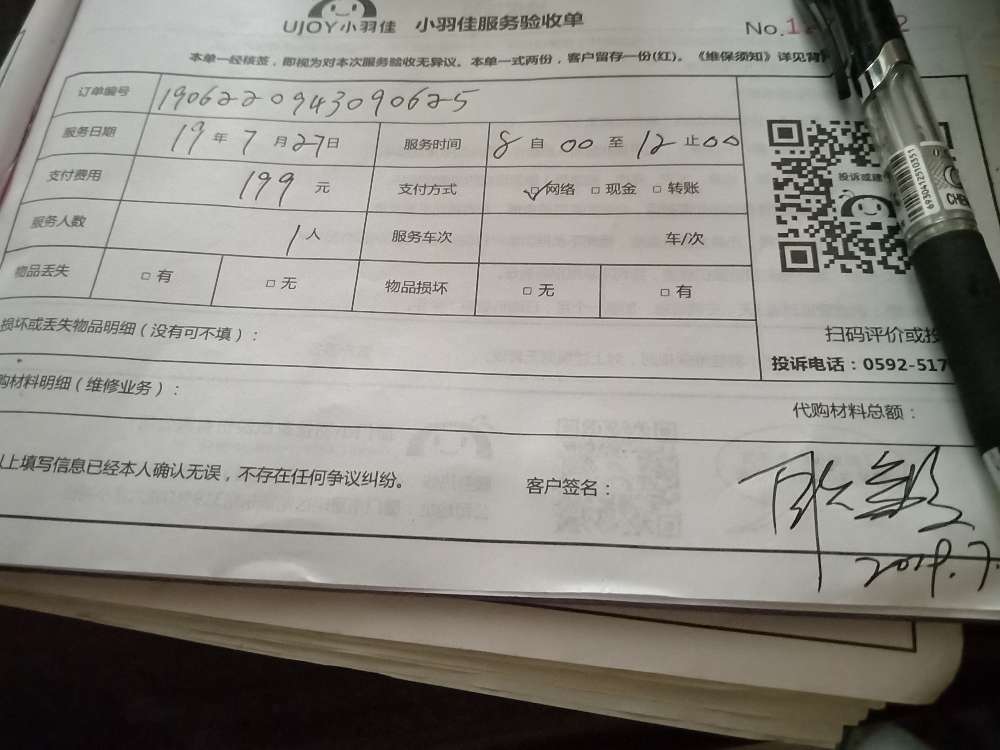 UJOY小羽佳 小羽佳服务验收单 No.1
本单一经核签，即视为对本次服务验收无异议。本单一式两份，客户留存一份(红)。《维保须知》详见背
订单编号 1906220943090625
服务日期 19 年 7 月 27 日 服务时间 8 自 00 至 12 止 00
支付费用 199 元 支付方式 ☑网络 □现金 □转账
投诉或建
服务人数 1 人 服务车次 车/次
物品丢失 □有 □无 物品损坏 □无 □有
损坏或丢失物品明细（没有可不填）：
扫码评价或投
投诉电话：0592-517
购材料明细（维修业务）： 代购材料总额：
以上填写信息已经本人确认无误，不存在任何争议纠纷。 客户签名：
2019.7.
6930412510351